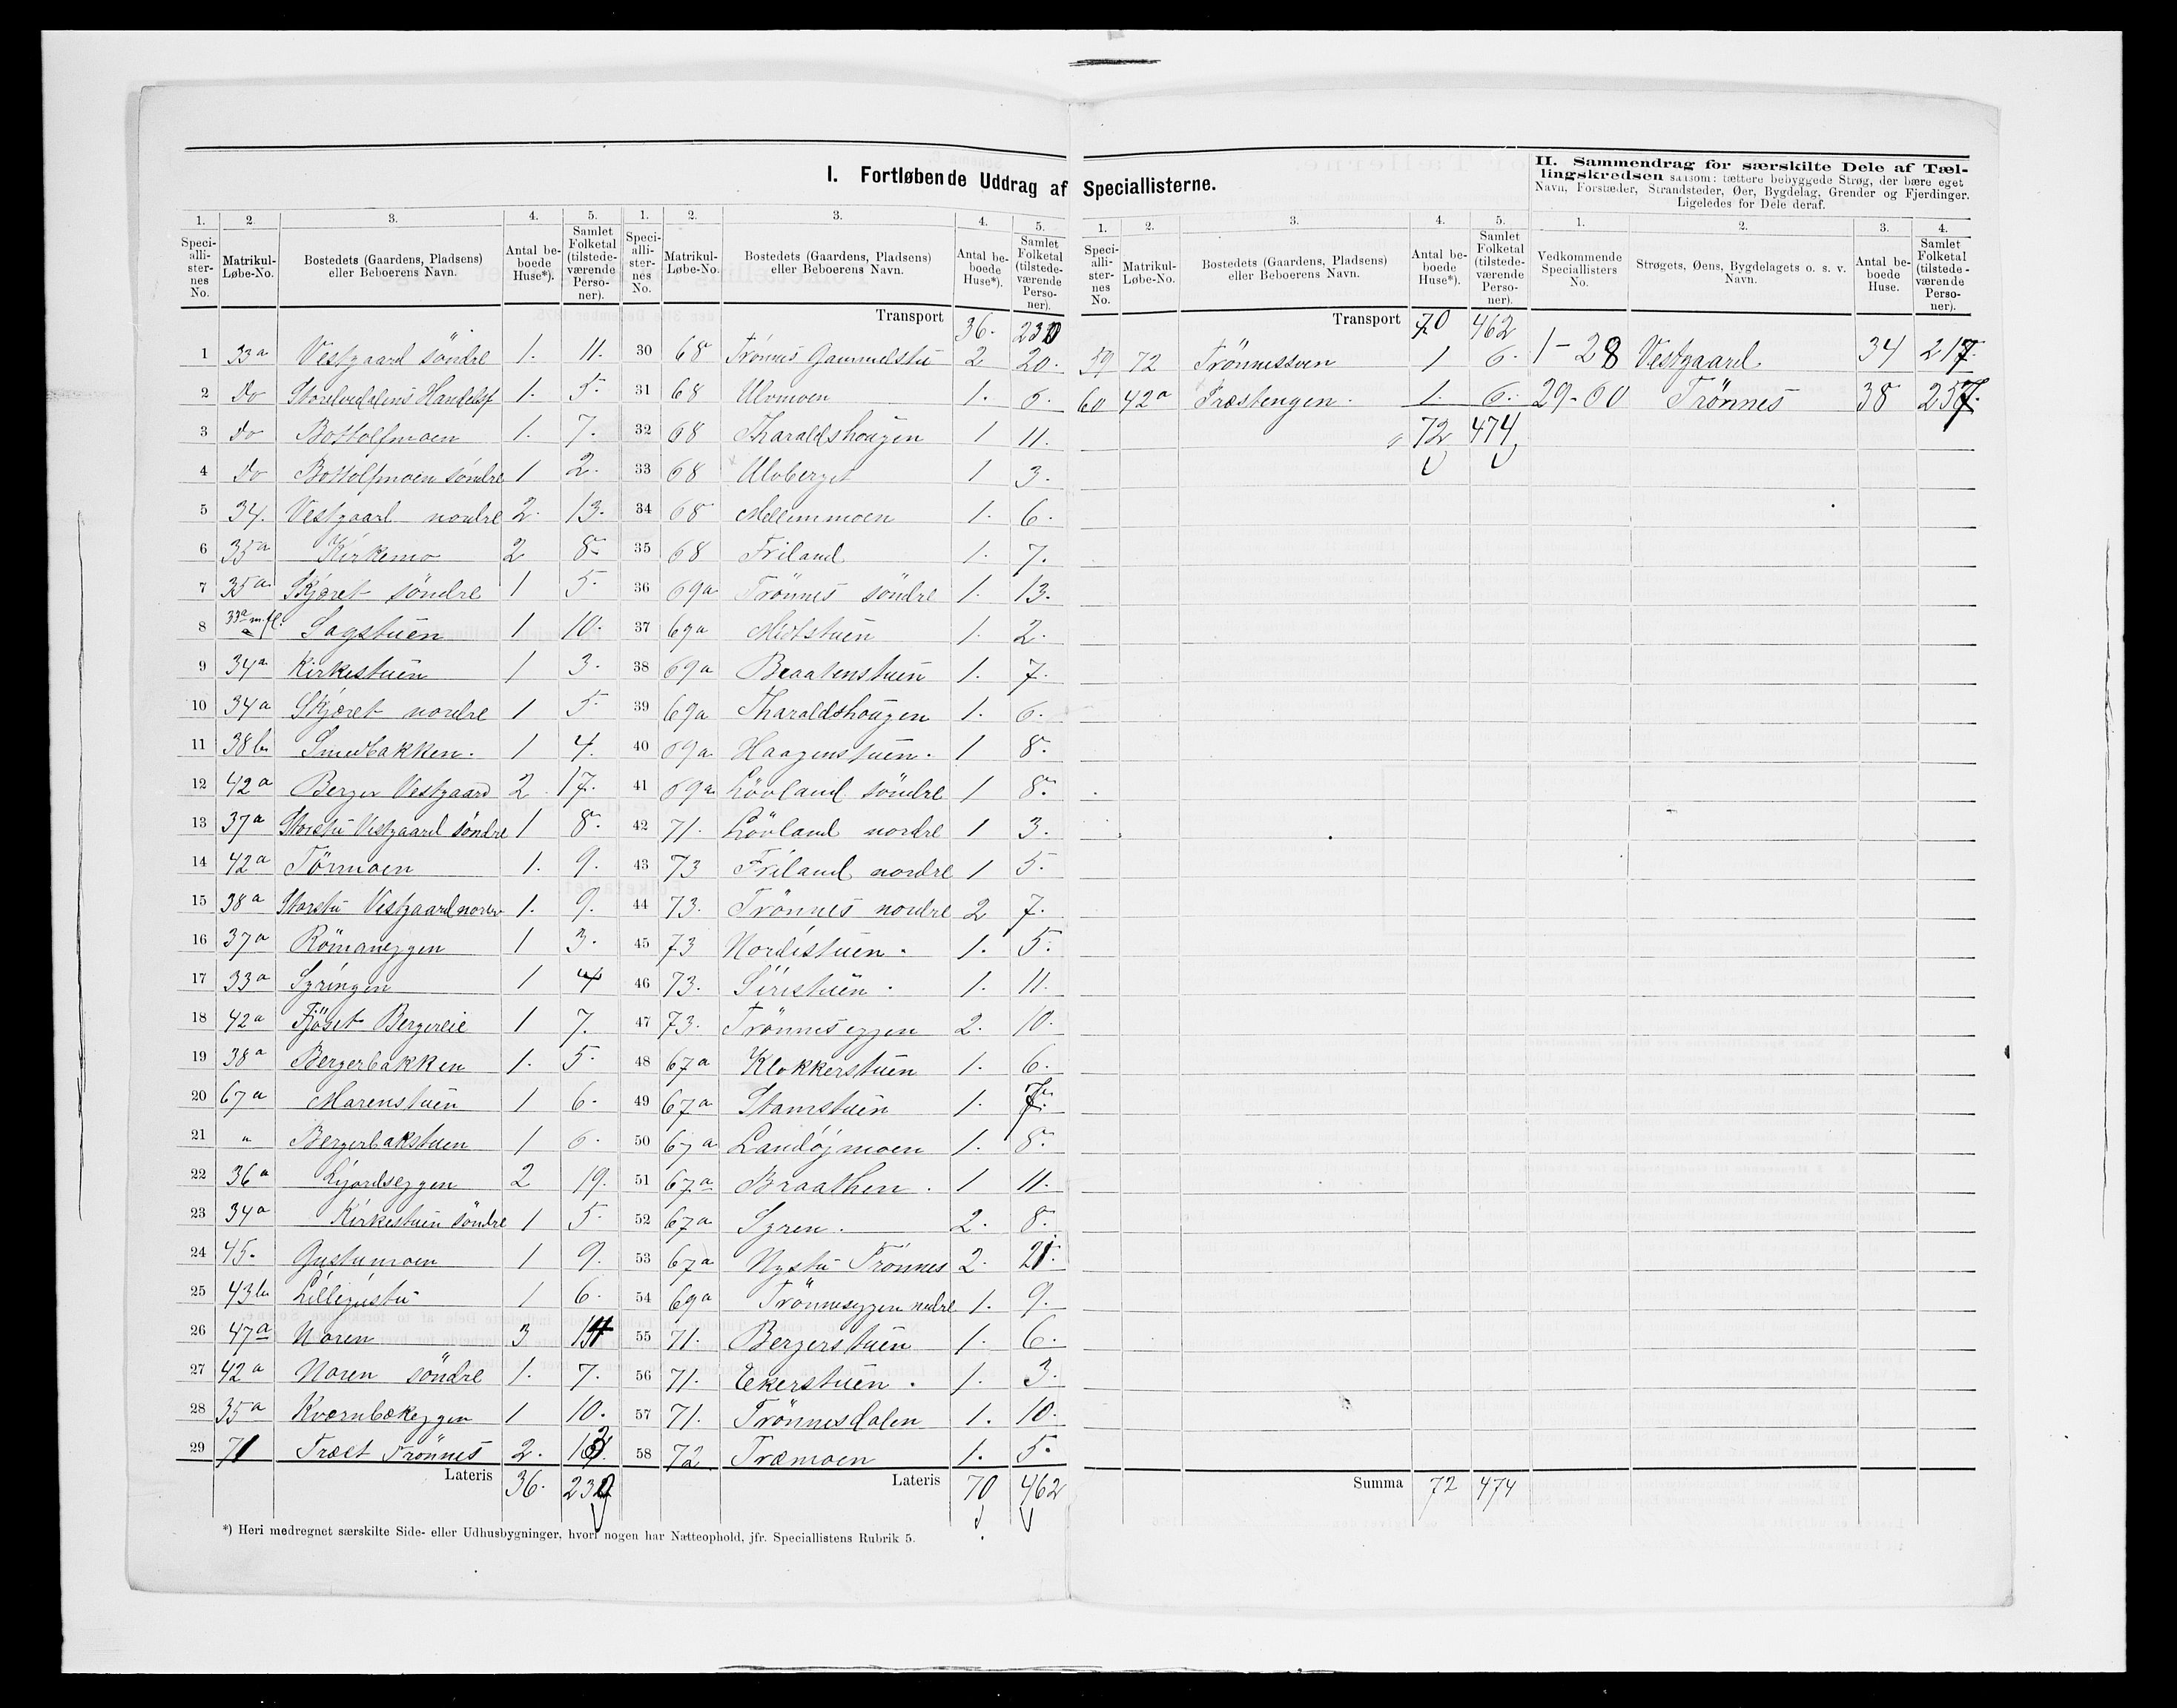 I. Fortløbende Uddrag af Speciallisterne.
II. Sammendrag for særskilte Dele af Tæl-
lingskredsen saasom: tættere bebyggede Strøg, der bære eget
Navn, Forstæder, Strandsteder, Øer, Bygdelag, Grender og Fjerdinger.
Ligeledes for Dele deraf.
1. 2. 3. 4. 5. 1. 2. 3. 4. 5.
Speci-alli-ster-nes No. Matrikul-Løbe-No. Bostedets (Gaardens, Pladsens) eller Beboerens Navn. Antal be-boede Huse*). Samlet Folketal (tilstede-værende Perso-ner). Speci-alli-ster-nes No. Matrikul-Løbe-No. Bostedets (Gaardens, Pladsens) eller Beboerens Navn. Antal be-boede Huse*). Samlet Folketal (tilstede-værende Perso-ner).
Transport 36. 230
1 33a Vestgaard söndre 1. 11. 30 68 Trönnes Gammelstu 2 20.
2 Do Storelvedalens Handelsf 1. 5. 31 68 Ulvmoen 1. 5.
3 Do Bottolfmoen 1. 7. 32 68 Tharaldshougen 1 11.
4 Do Bottolfmoen söndre 1 2. 33 68 Ulvberget 1 3.
5 34. Vestgaard nordre 2. 13. 34 68 Mellemmoen 1. 6.
6 35a Kirkemo 2 8. 35 68 Friland 1. 7.
7 35a Skjæret söndre 1 5. 36 69a Trönnes söndre 1. 13.
8 33a m.fl. Sagstuen 1 10. 37 69a Midtstuen 1. 2.
9 34a Kirkestuen 1 3. 38 69a Braatenstuen 1. 7.
10 34a Skjæret nordre 1 5. 39 69a Tharaldshougen 1. 6.
11 38b Smedbakken. 1 4. 40 69a Haagenstuen. 1 8.
12 42a Berger Vestgaard 2 17. 41 69a Lövland söndre 1 8.
13 37a Storstu Vestgaard söndre 1 8. 42 71. Lövland nordre 1 3.
14 42a Törmoen 1. 9. 43 73 Friland nordre 1 5.
15 38a Storstu Vestgaard nordr 1. 9. 44 73. Trönnes nordre 2 7.
16 37a Römaneggen 1 3. 45 73 Nordistuen. 1. 5.
17 33a Sgringen 1 4 46 73. Siristuen. 1. 11.
18 42a Fjöset Bergereie 1 7. 47 73. Trönneseggen 2. 10.
19 38a Bergerbakken 1. 5. 48 67a Klokkerstuen 1. 6.
20 67a Marenstuen 1 6. 49 67a Stamstuen 1. 7.
21 " Bergerbakstuen 1 6. 50 67a Landöjmoen 1. 8.
22 36a Kjördseggen 2 19. 51 67a Braathen. 1 11.
23 34a Kirkestuen söndre 1 5. 52 67a Sgren. 2. 8.
24 45. Gustumoen 1 9. 53 67a Nystu Trönnes 2. 21.
25 43b Lillegustu 1 6. 54 69a Trönneseggen nedre 1. 9.
26 47a Noren 3 14 55 71. Bergerstuen 1. 6.
27 42a Noren söndre 1. 7. 56 71. Ekerstuen. 1. 3.
28 35a Kværnbækeggen 1 10. 57 71. Trönnesdalen 1. 10.
29 71 Træet Trönnes 2. 13 58 72 Træmoen 1. 5.
Lateris 36. 230 Lateris 70 462
*) Heri medregnet særskilte Side- eller Udhusbygninger, hvori nogen har Natteophold, jfr. Speciallistens Rubrik 5.
1. 2. 3. 4. 5. 1. 2. 3. 4.
Speci-alli-ster-nes No. Matrikul-Løbe-No. Bostedets (Gaardens, Pladsens) eller Beboerens Navn. Antal be-boede Huse*). Samlet Folketal (tilstede-værende Perso-ner). Vedkommende Speciallisters No. Strøgets, Øens, Bygdelagets o. s. v. Navn. Antal be-boede Huse. Samlet Folketal (tilstede-værende Perso-ner).
Transport 70 462
59 72 Trönnessven 1 6. 1-28 Vestgaard 34 217.
60 42a Præstengen. 1. 6. 29-60 Trönnes 38 257.
72 474
Summa 72 474